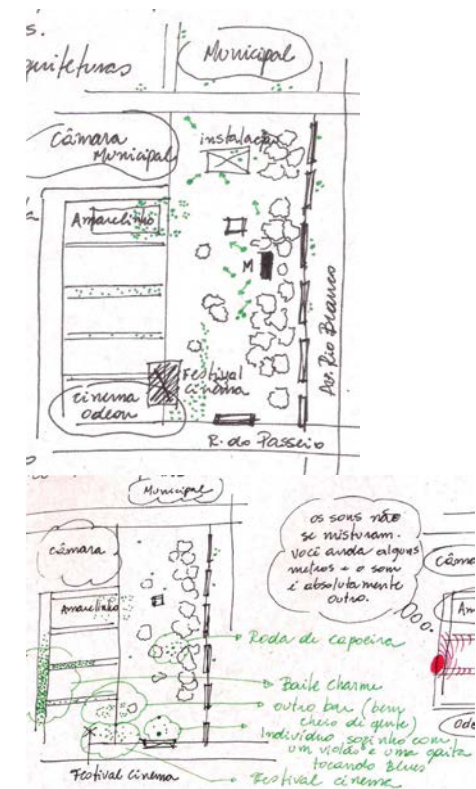 s.
Municipal
Câmara
Municipal
instalação
Amarelinho
M
Av. Rio Branco
Festival
Cinema
cinema
Odeon
R. do Passeio
Municipal
os sons não
se misturam.
você anda alguns
metros e o som
é absolutamente
outro.
câmara
Câma
Amarelinho
Am
Roda de capoeira
Baile Charme
outro bar (bem
cheio de gente)
Indivíduo sozinho com
um violão e uma gaita
tocando Blues
Festival cinema
Festival cinema
Ode